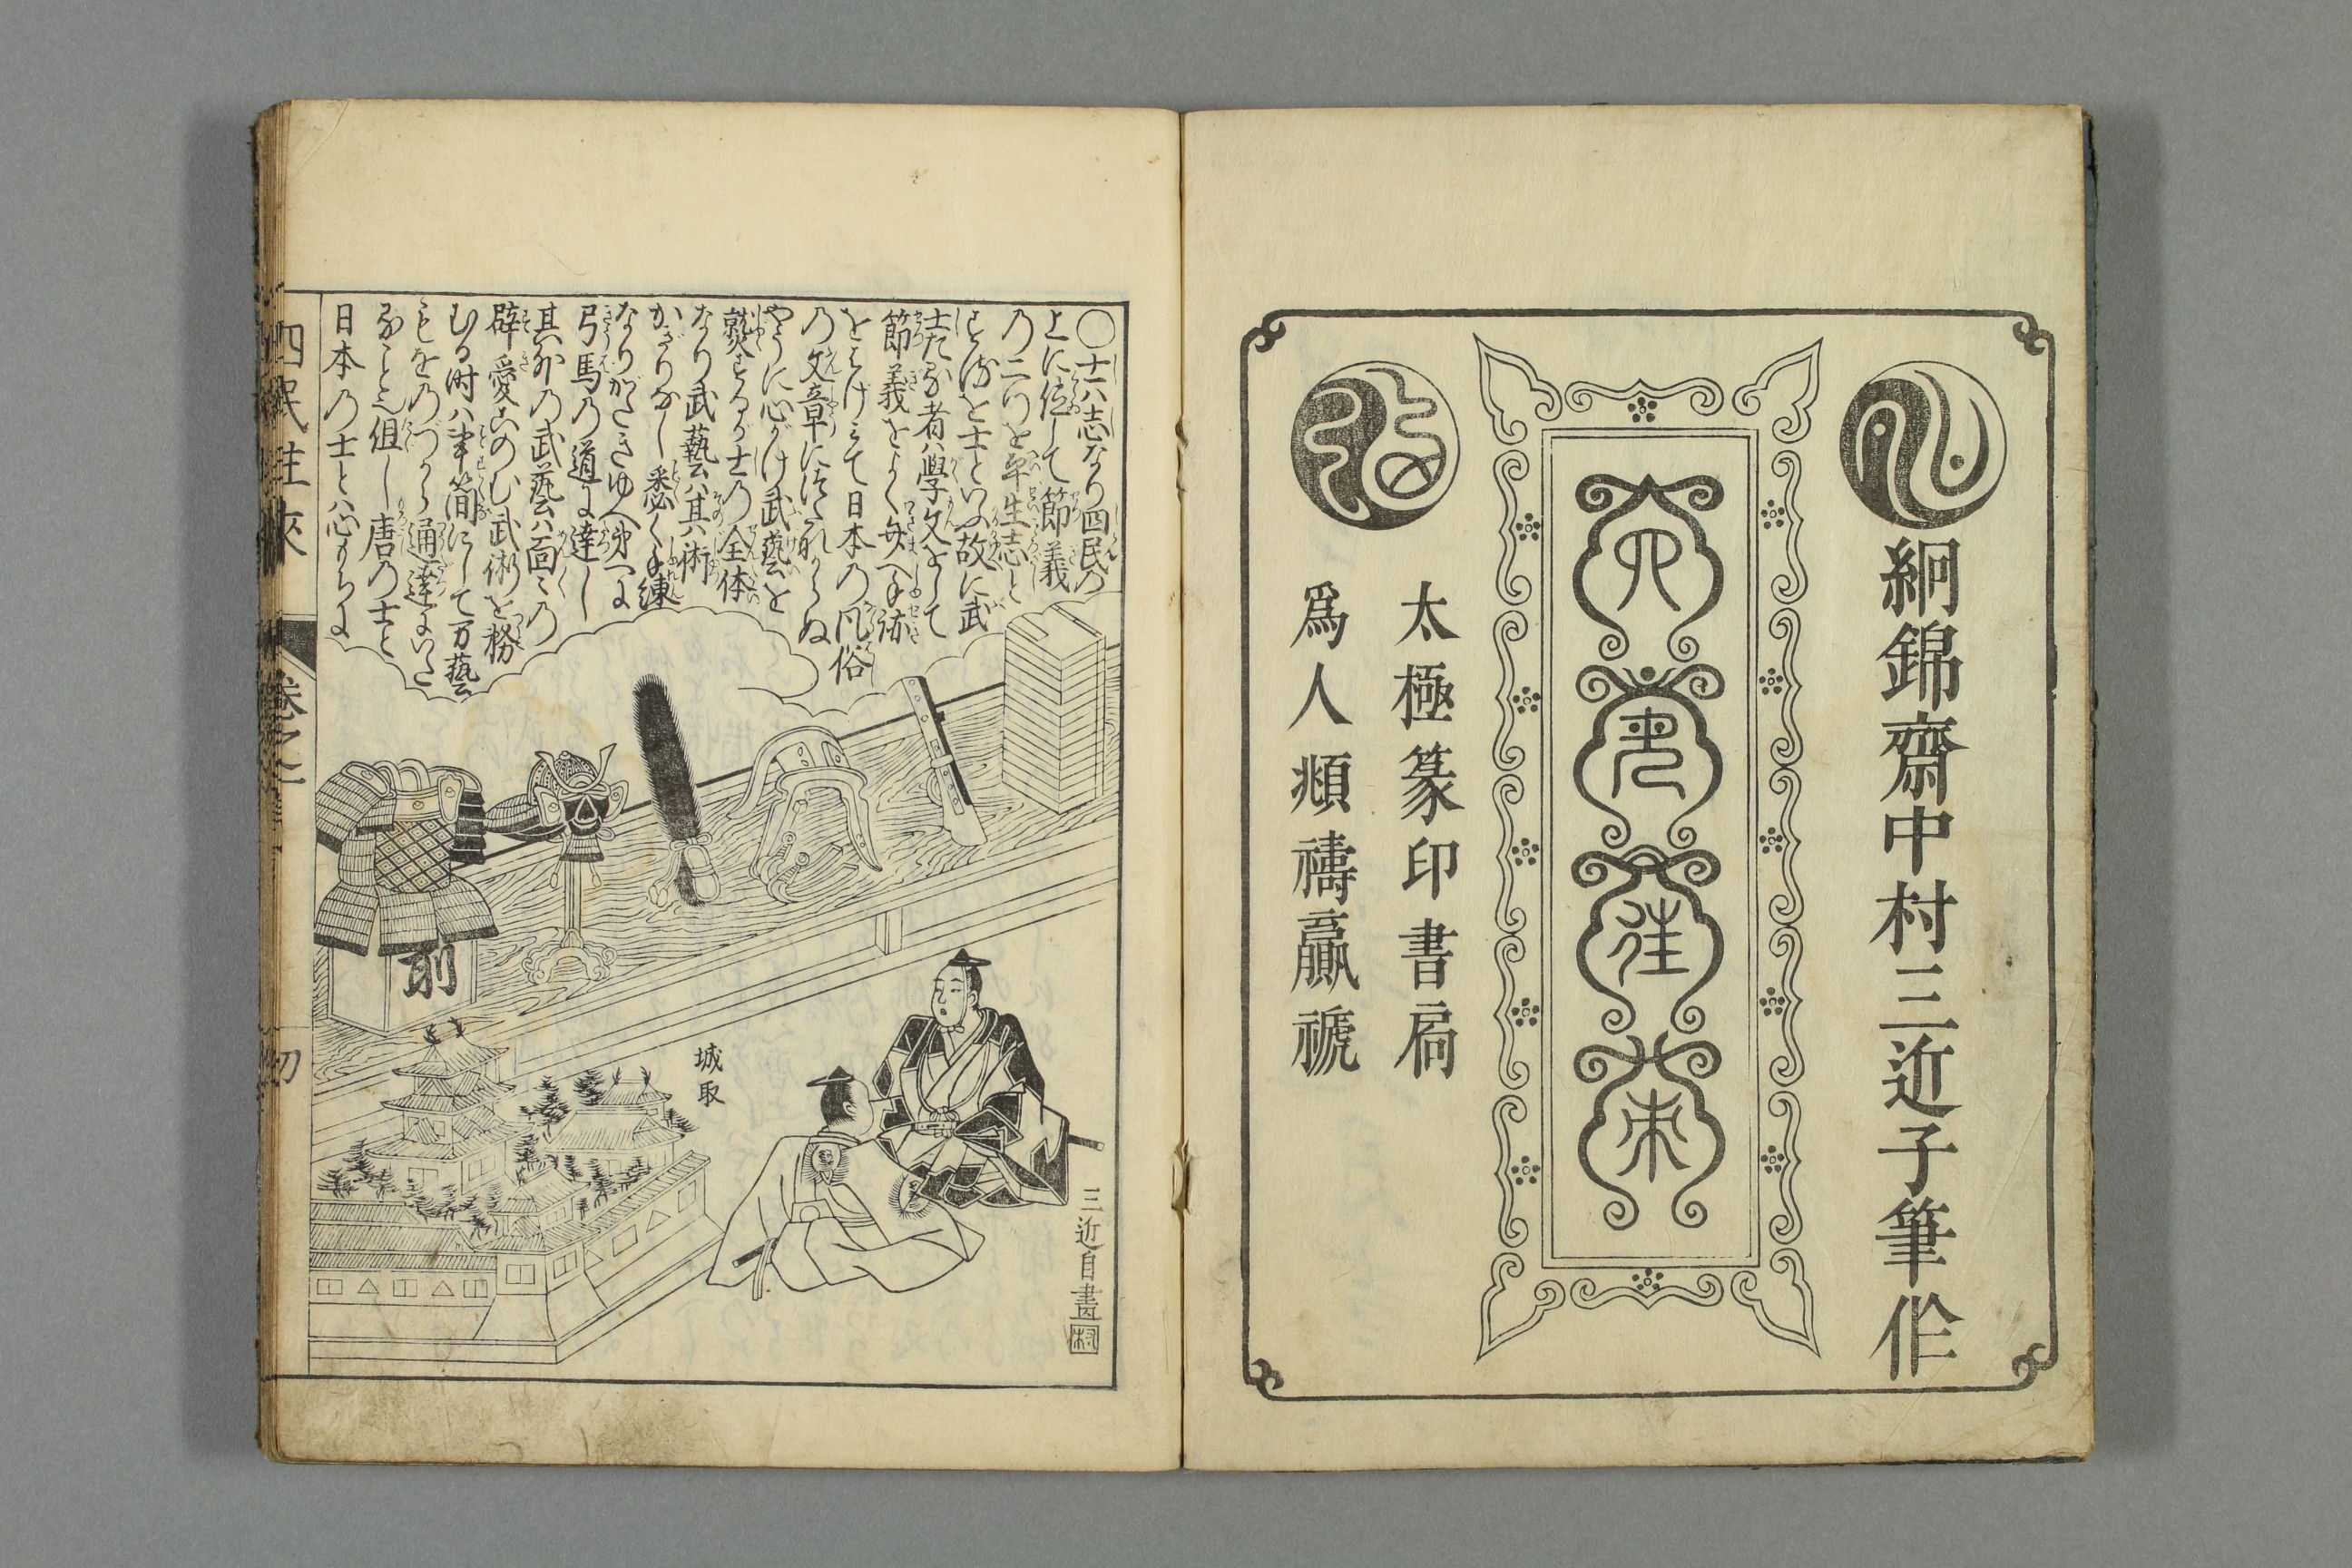 絅錦齋中村三近子筆作
四民往来
太極篆印書扄
爲人頫禱贏禠
〇士ハ志なり四民の
上に位して節義
の二つを平生志と
するを士といふ故に武
士たる者ハ學文をして
節義をよく弁へ手跡
をはげみて日本の风俗
の文章にはづれぬ
やうに心がけ武藝を
熟するが士の全体
なり武藝ハ其六術
かぎりなし悉く手練
なりがたきゆへ第一に
弓馬の道に達し
其外の武藝ハ面々の
辟愛このむ武術を務
むる時ハ事簡にして万藝
もをのづから通達にいた
ることゝ也但し唐の士と
日本の士とハ心もちに
城取
前
三近自畫
四民往來
卷之上
初